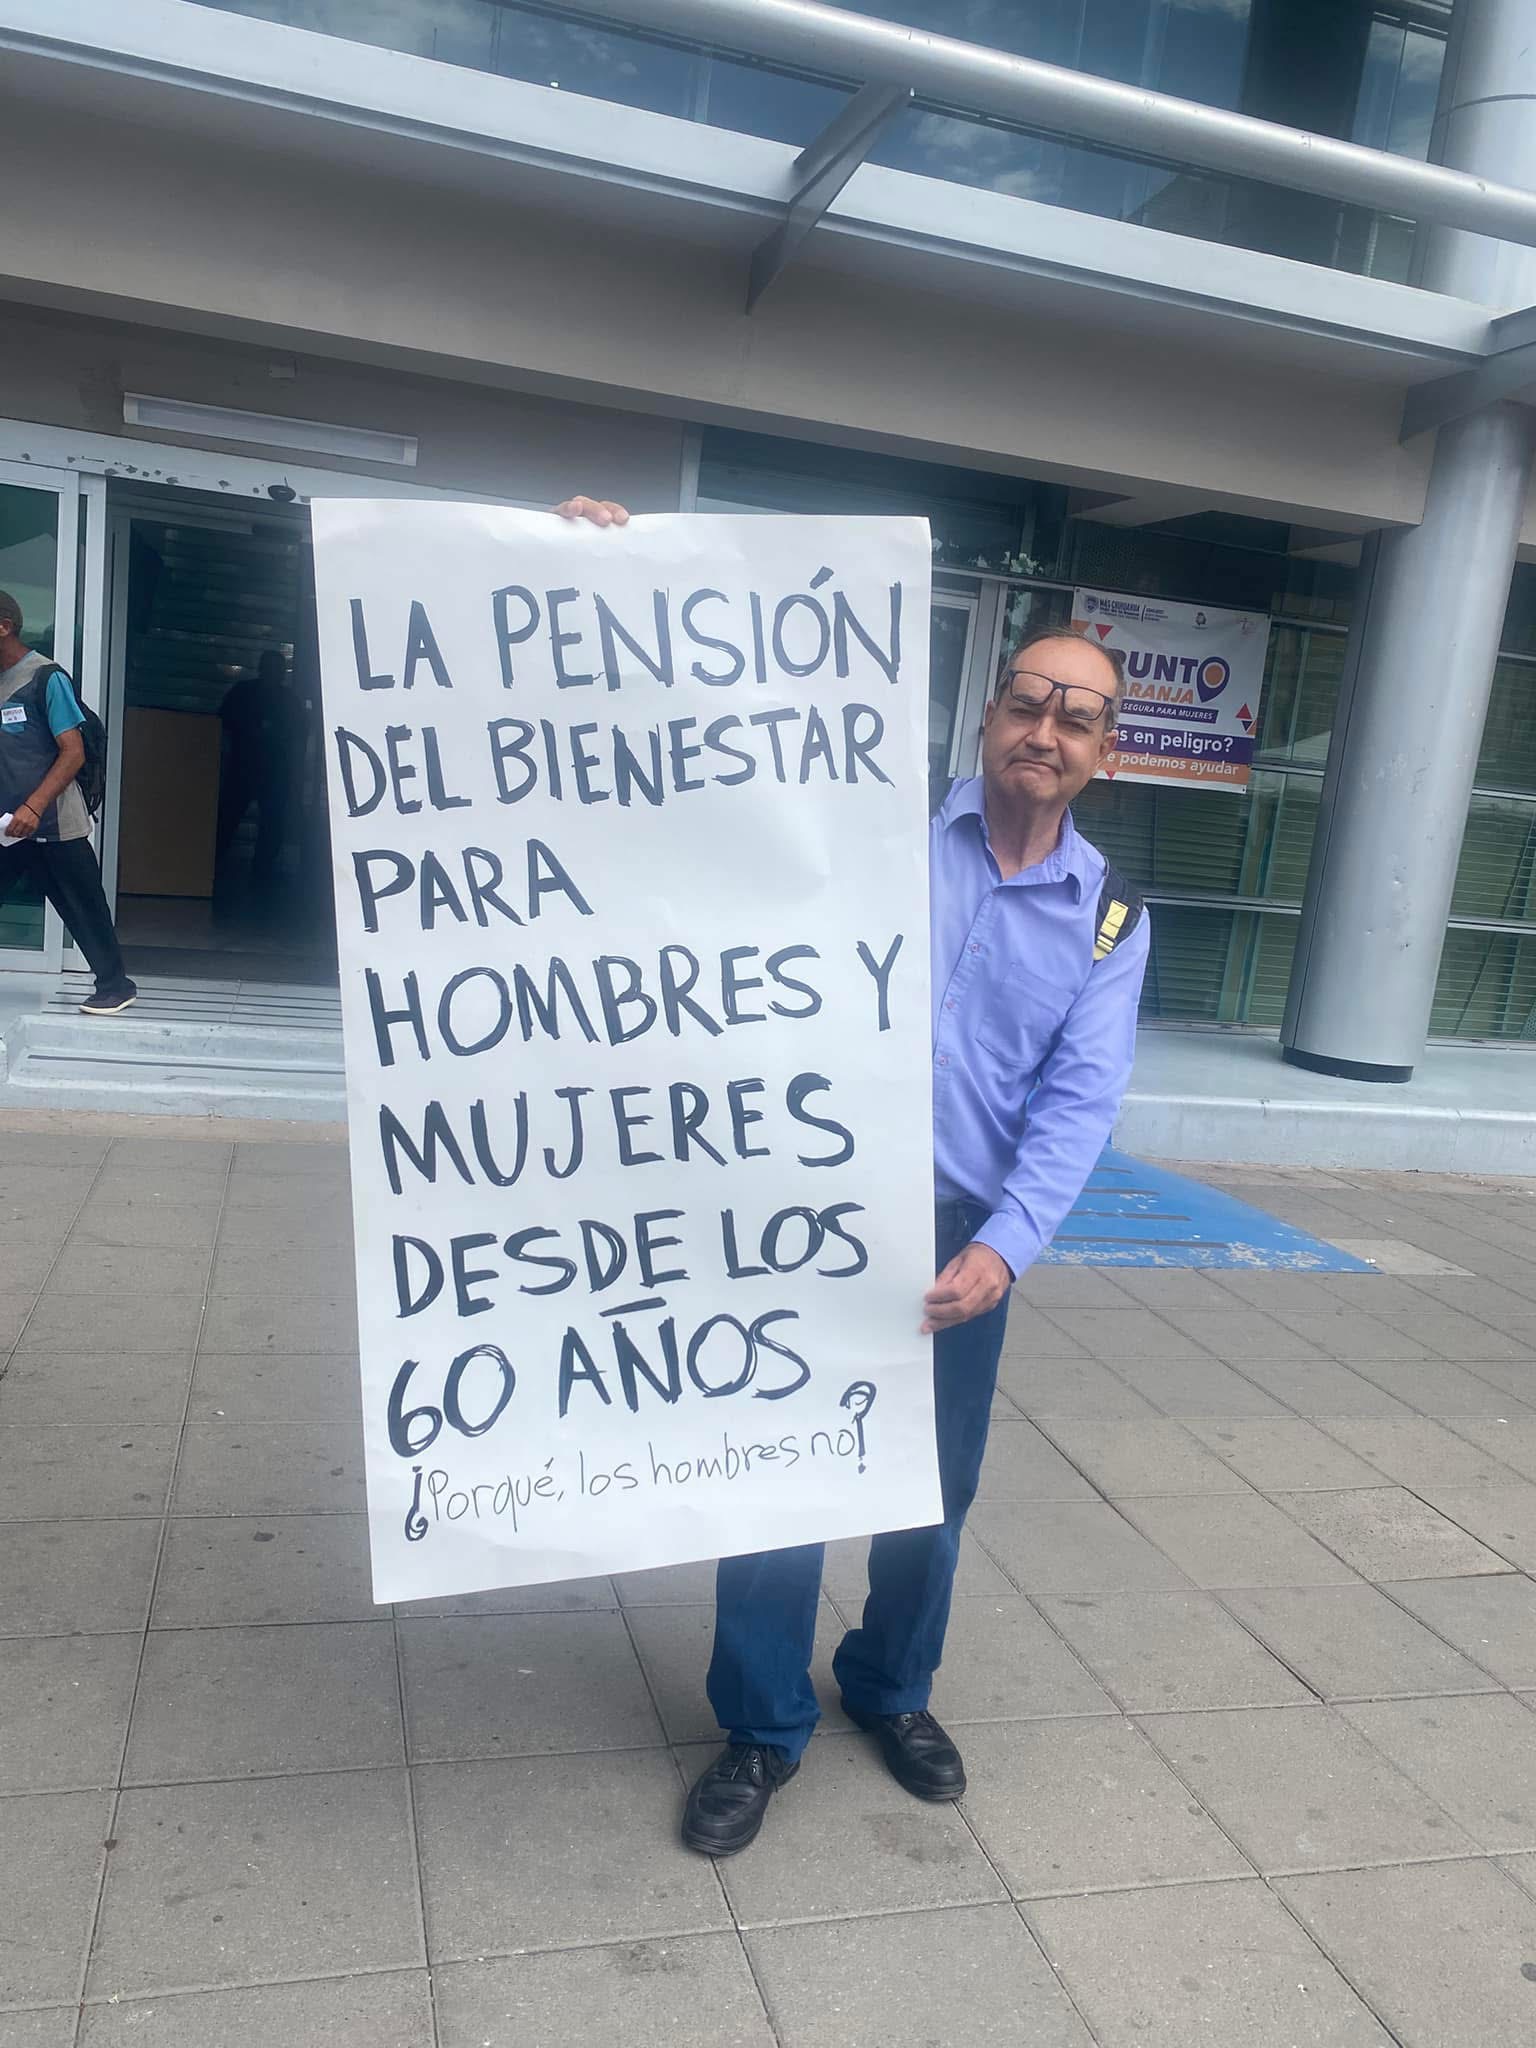 LA PENSIÓN
DEL BIENESTAR
PARA
HOMBRES Y
MUJERES
DESDE LOS
60 AÑOS
¿¡Porqué, los hombres no!?
MÁS CHIHUAHUA
PUNTO
NARANJA
SEGURA PARA MUJERES
s en peligro?
e podemos ayudar